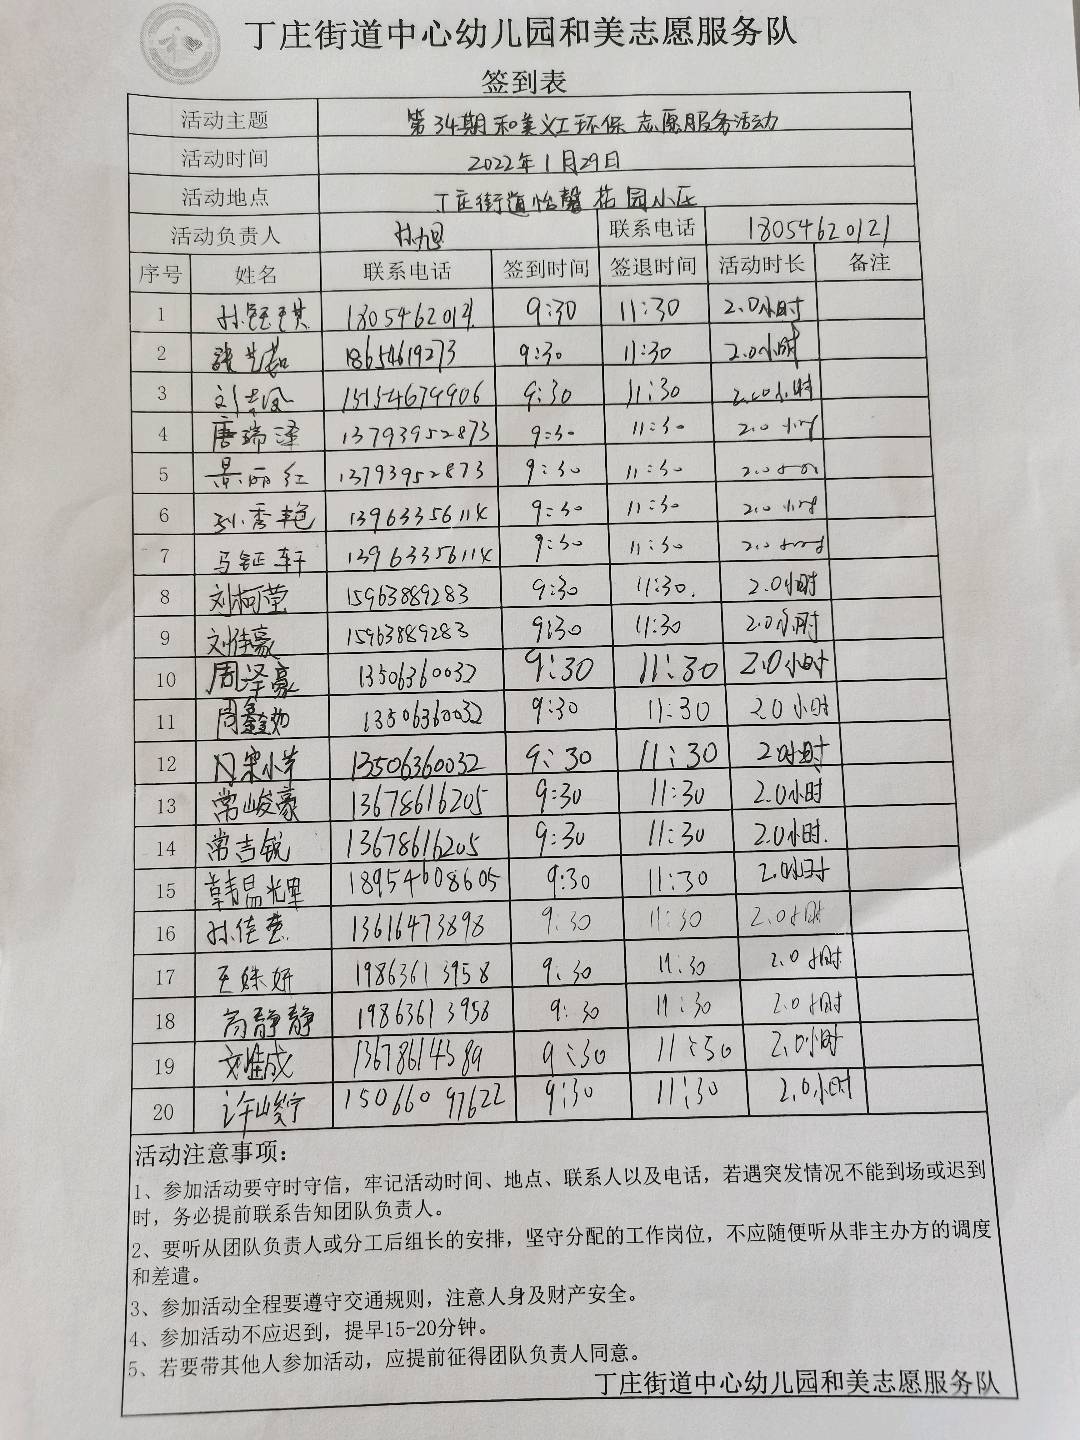 丁庄街道中心幼儿园和美志愿服务队
签到表
活动主题 第34期和美义工环保志愿服务活动
活动时间 2022年1月29日
活动地点 丁庄街道怡馨花园小区
活动负责人 孙旭 联系电话 18054620121
序号 姓名 联系电话 签到时间 签退时间 活动时长 备注
1 9:30 11:30 2.0小时
2 18654619273 9:30 11:30 2.0小时
3 15154679906 9:30 11:30 2.0小时
4 唐瑞泽 13793952873 9:30 11:30 2.0小时
5 景丽红 13793952873 9:30 11:30 2.0小时
6 孙秀艳 1396335611X 9:30 11:30 2.0小时
7 马钲轩 1396335611X 9:30 11:30 2.0小时
8 刘柯莹 15963889283 9:30 11:30. 2.0小时
9 刘佳豪 15963889283 9:30 11:30 2.0小时
10 周泽豪 13506360032 9:30 11:30 2.0小时
11 13506360032 9:30 11:30 2.0小时
12 13506360032 9:30 11:30 2小时
13 常峻豪 13678616205 9:30 11:30 2.0小时
14 常吉锐 13678616205 9:30 11:30 2.0小时.
15 18954608605 9:30 11:30 2.0小时
16 孙佳慧 13616473898 9:30 11:30 2.0小时
17 王姝妍 19863613958 9:30 11:30 2.0小时
18 高静静 19863613958 9:30 11:30 2.0小时
19 13678614389 9:30 11:30 2.0小时
20 许峻宁 15066097622 9:30 11:30 2.0小时
活动注意事项：
1、参加活动要守时守信，牢记活动时间、地点、联系人以及电话，若遇突发情况不能到场或迟到
时，务必提前联系告知团队负责人。
2、要听从团队负责人或分工后组长的安排，坚守分配的工作岗位，不应随便听从非主办方的调度
和差遣。
3、参加活动全程要遵守交通规则，注意人身及财产安全。
4、参加活动不应迟到，提早15-20分钟。
5、若要带其他人参加活动，应提前征得团队负责人同意。
丁庄街道中心幼儿园和美志愿服务队